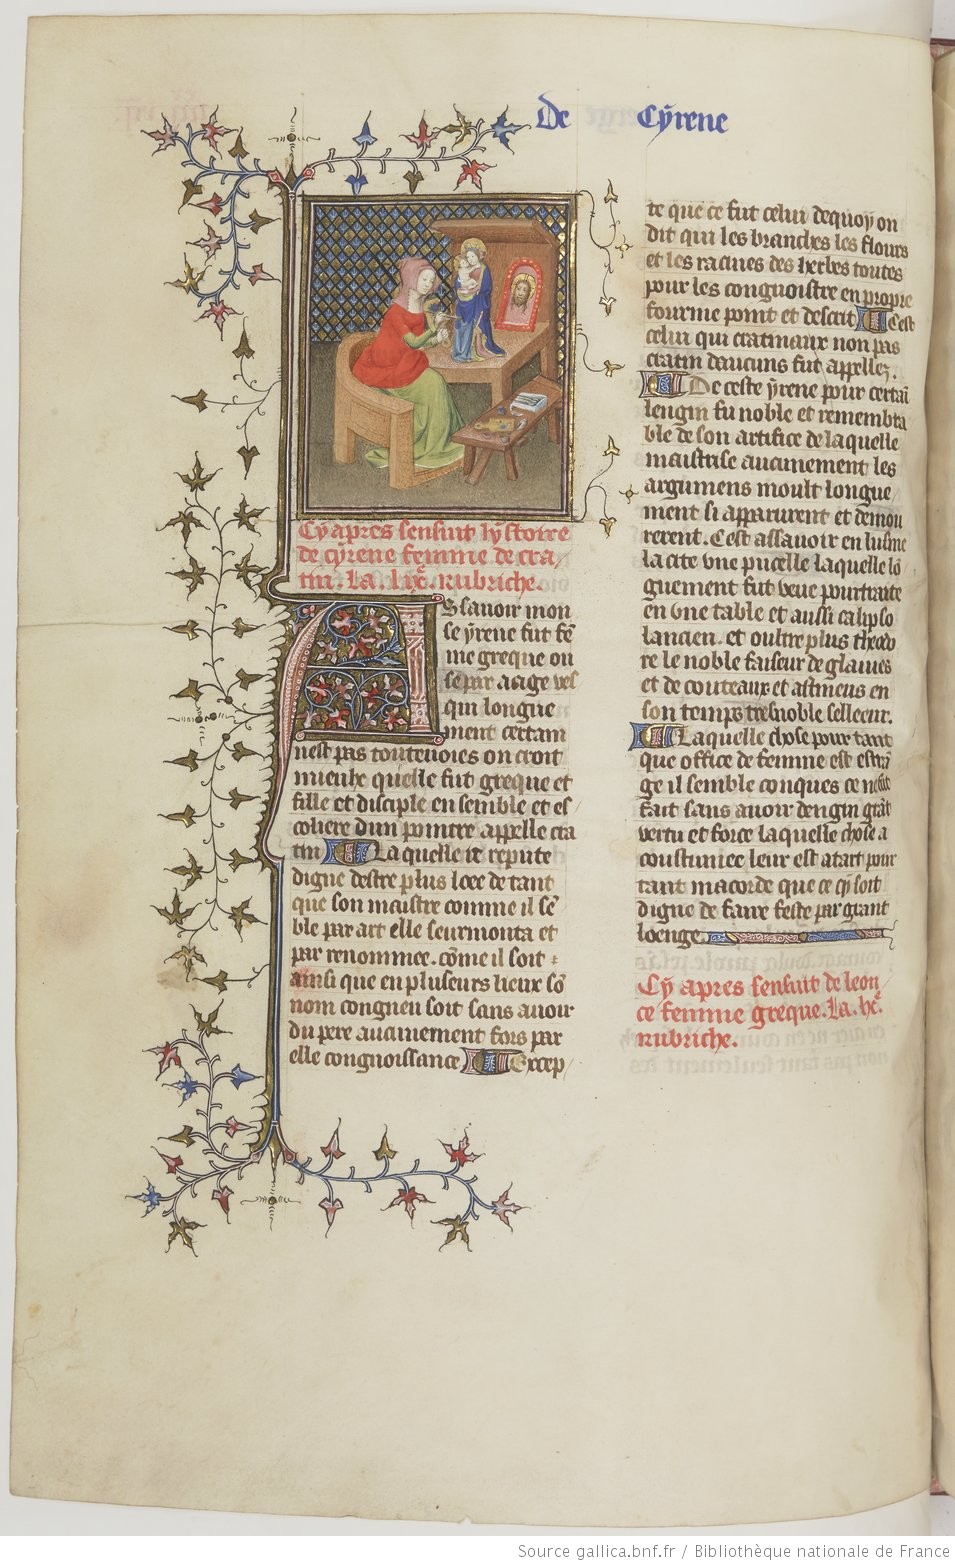 De Cyrene
Cy apres sensuit lystoire
de cyrene femme de cra/
tin. La lixe. rubriche.
Assavoir mon
se yrene fut fe
me greque ou
se par aage vel
qui longue
ment certain
nest pas toutevoies on croit
mieulx quelle fut greque et
fille et disciple ensemble et es
coliere dun pointre appelle cra
tin Laquelle ie repute
digne destre plus loee de tant
que son maistre comme il se
ble par art elle seurmonta et
par renommee. come il soit
ainsi que en pluseurs lieux so
nom congneu soit sans avoir
du pere aucunement fors par
elle congnoissance Excep/
te que ce fut celui dequoy on
dit qui les branches les flours
et les racines des herbes toutes
pour les congnoistre en propre
fourme point et descrit Cest
celui qui cratinaux non pas
cratin daucuns fut appellez.
De ceste yrene pour certai
lengin fu noble et remembra
ble de son artifice de laquelle
maistrise aucunement les
argumens moult longue
ment si apparurent et demou
rerent. Cest assavoir en lusine
la cite une pucelle laquelle lo
guement fut veue pourtraite
en une table et aussi calipso
lancien. et oultre plus theodo
re le noble faiseur de glaives
et de couteaux et astineus en
son temps tresnoble selleeur.
Laquelle chose pour tant
que office de femme est estra
ge il semble conques ce ne fut
fait sans avoir dengin grat
vertu et force laquelle chose a
coustumee leur est atart pour
tant macorde que ce cy soit
digne de faire feste par grant
loenge.
Cy apres sensuit de leon
ce femme greque. La .lxe.
rubriche.
Source gallica.bnf.fr / Bibliothèque nationale de France